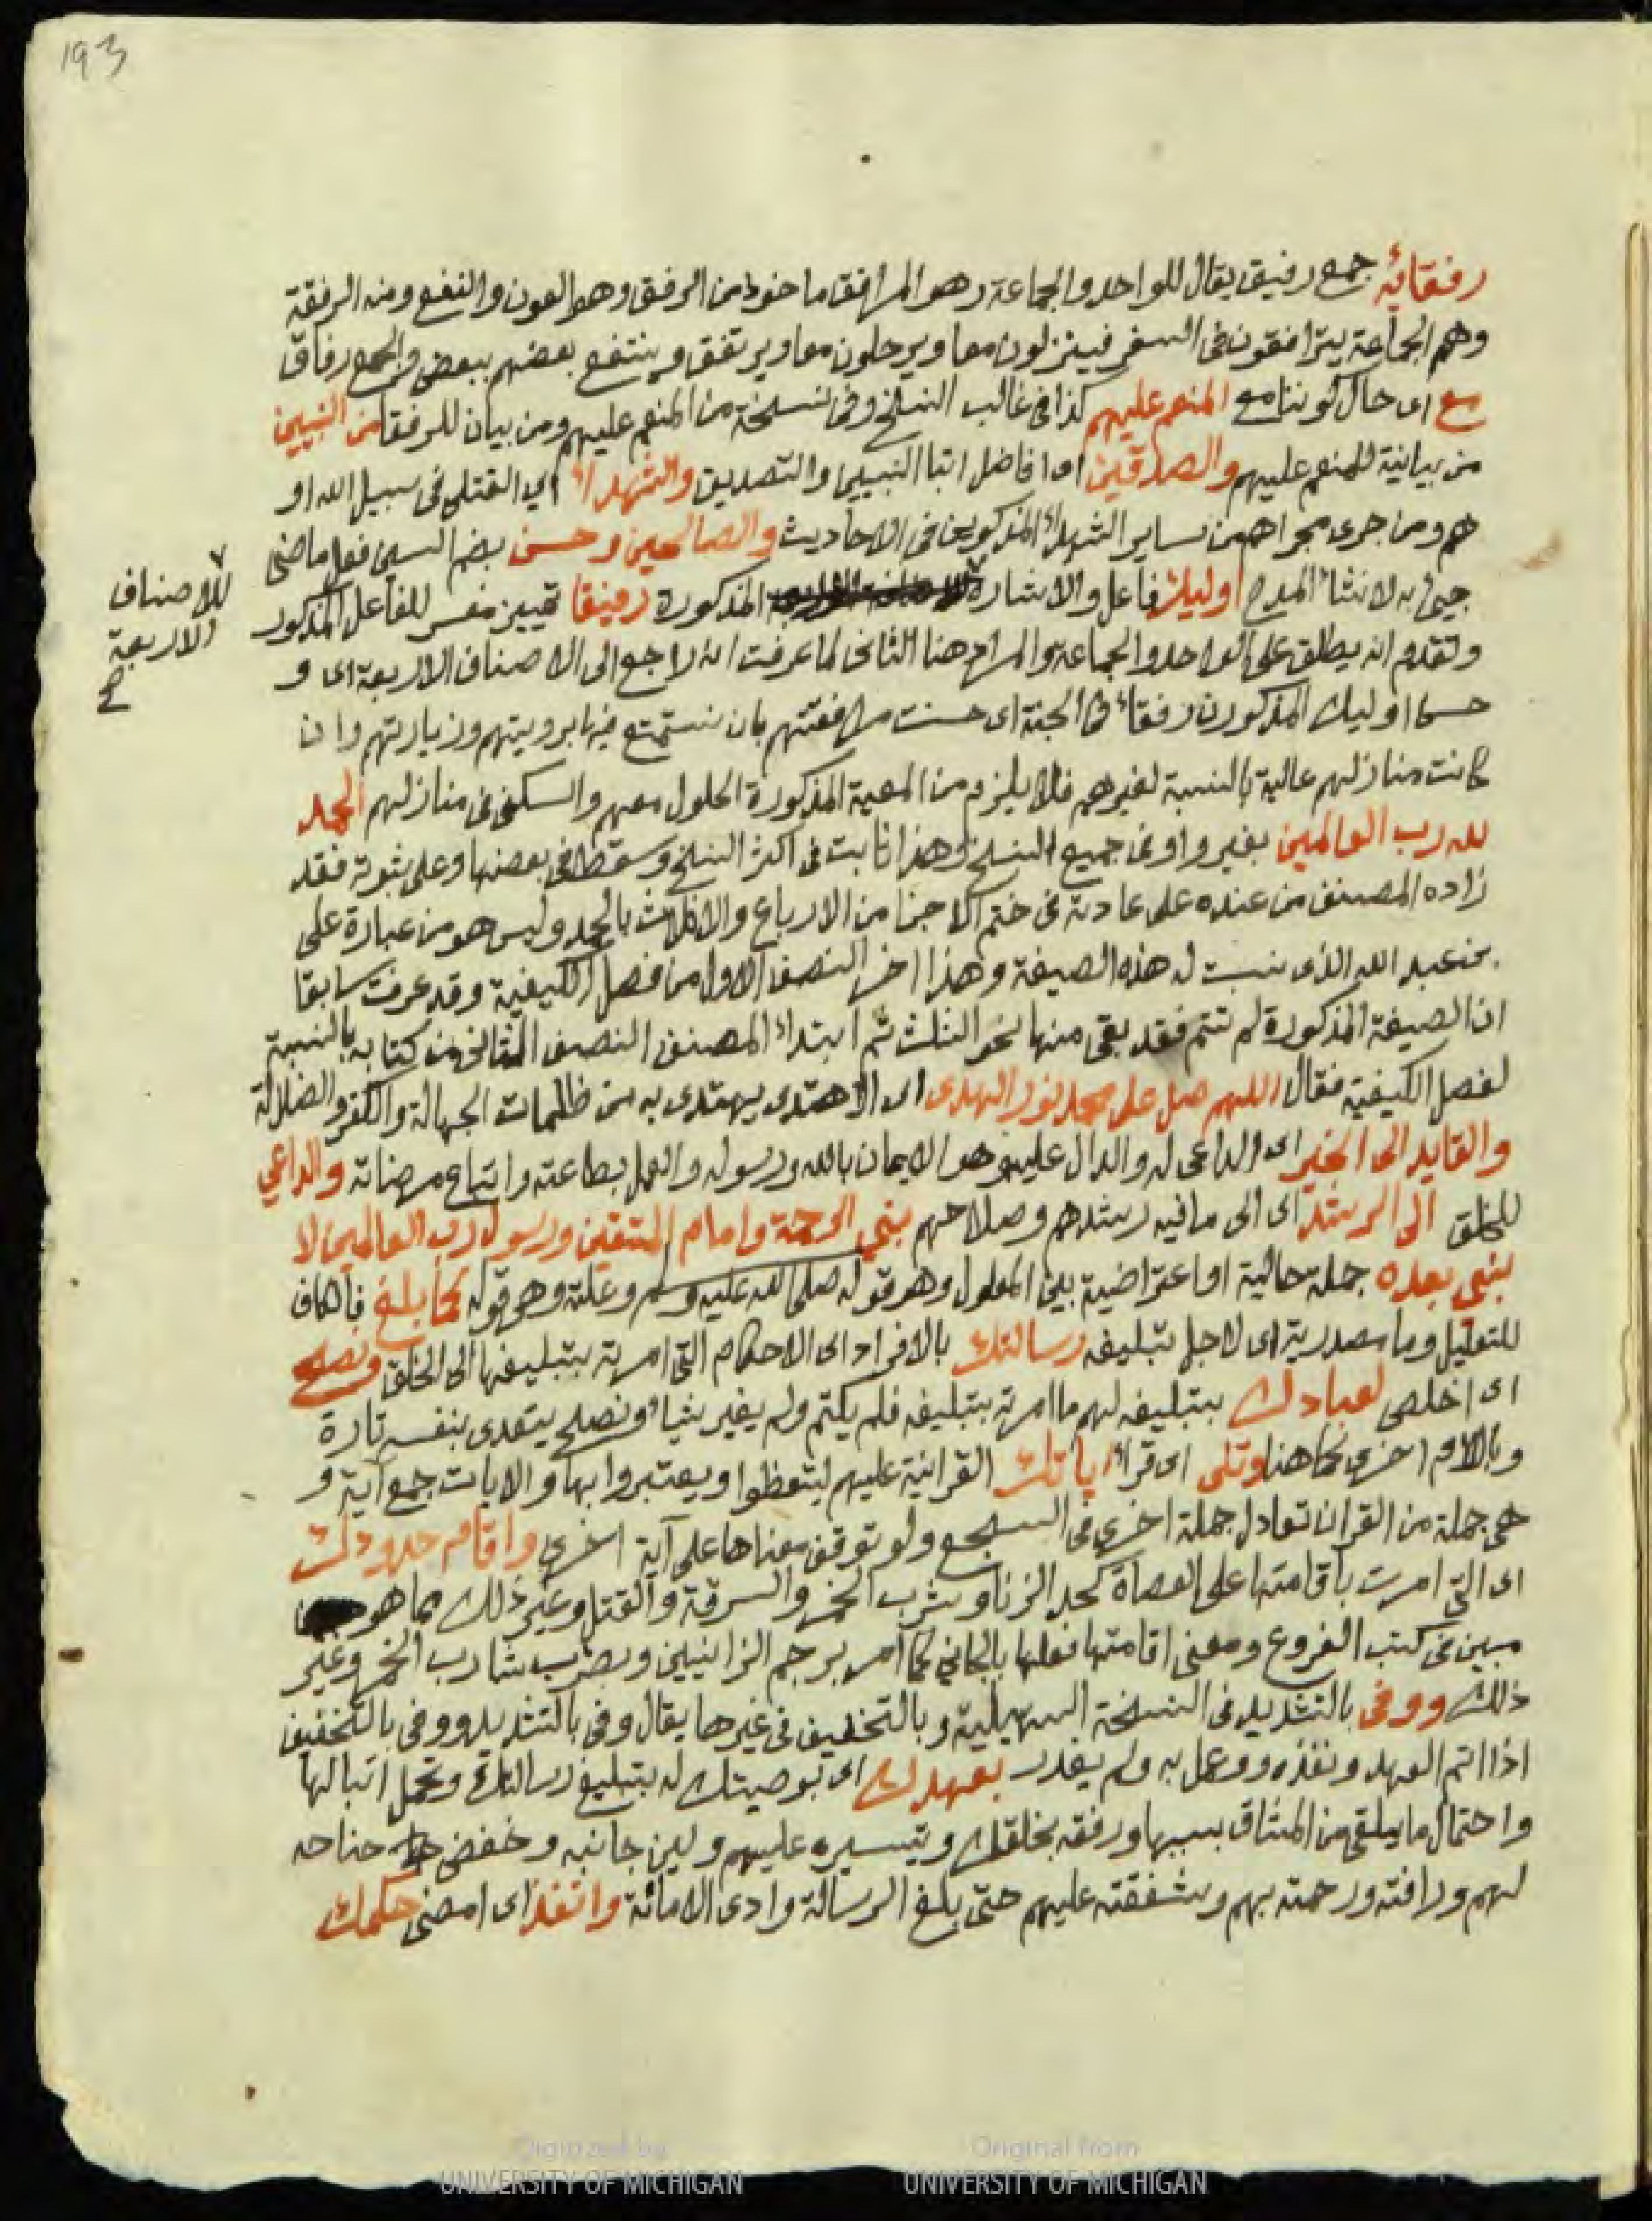 193
رفقائه جمع رفيق يقال للواحد والجماعة وهو المرافق ماخوذ من الرفق وهو العون والنفع ومنه الرفقة
وهم الجماعة يترافقون فى السفر فينزلون معا ويرحلون معا ويرتفق وينتفع بعضهم ببعض والجمع رفاق
مع اى حال كوننا مع المنعم عليهم كذا فى غالب النسخ وفى نسخة من المنعم عليهم ومن بيان للرفقا من النبيين
من بيانية للمنعم عليهم والصديقين اى افاضل اتبا النبيين والتصديق والشهداء اي القتلى فى سبيل الله او
هم ومن جرى مجراهم من ساير الشهداء المذكورين فى الاحاديث والصالحين وحسن بضم السين فعل ماضى
جيئ به لانشاء المدح اوليك فاعل والاشارة المذكورة رفيقا تمييز مفسر للفاعل المذكور
للاصناف
الاربعة
صح
وتقدم انه يطلق على الواحد والجماعة والمراد هنا الثانى لما عرفت انه راجع الى الاصناف الاربعة اى و
حسن اوليك المذكورون رفقاء فى الجنة اى حسنت مرافقتهم بان نستمتع فيها برويتهم وزيارتهم وان
كانت منازلهم عالية بالنسبة لغيرهم فلا يلزم من المعية المذكورة الحلول معهم والسكنى فى منازلهم الحمد
لله رب العالمين بغير واو فى جميع النسخ وهذا ثابت فى اكثر النسخ وسقط فى بعضها وعلى ثبوته فقد
زاده المصنف من عنده على عادته فى ختم الاجزا من الارباع والاثلاث بالحمد وليس هو من عبارة على
بن عبد الله الذى نسبت له هذه الصيغة وهذا اخر النصف الاول من فصل الكيفية وقد عرفت سابقا
ان الصيغة المذكورة لم تتم فقد بقى منها نحو الثلث ثم ابتداء المصنف النصف الثانى من كتابه بالنسبة
لفصل الكيفية فقال اللهم صل على محمد نور الهدى اى الاهتدى يهتدى به من ظلمات الجهالة والكفر والضلالة
والقايد الى الخير اى الداعى له والدال عليه وهو الايمان بالله ورسوله والعمل بطاعته واتباع مرضاته والداعي
للخلق الى الرشد اى الى ما فيه رشدهم وصلاحهم نبي الرحمة وامام المتقين ورسول رب العالمين لا
نبي بعده جملة حالية او اعتراضية بين المعلول وهو قوله صلى الله عليه وسلم وعلته وهى قوله كما بلغ فالكاف
للتعليل وما مصدرية اى لاجل تبليغه رسالتك بالافراد اى الاحكام التى امرته بتبليغها الى الخلق ونصح
اى اخلص لعبادك بتبليغه لهم ما امرته بتبليغه فلم يكتم ولم يغير شيأ ونصح يتعدى بنفسه تارة
وبالام اخرى كما هنا وتلى اى قراء اياتك القرانية عليهم ليتعظوا ويعتبروا بها والايات جمع آية و
هى جملة من القران تعادل جملة اخرى فى السجع ولو توقف معناها على آية اخرى واقام حدودك
اى التى امرت باقامتها على العصاة كحد الزنا وشرب الخمر والسرقة والقتل وغير ذلك مما هو
مبين فى كتب الفروع ومعنى اقامتها فعلها بالجاني كما امر برجم الزانيين وبضرب شارب الخمر وغير
ذلك ووفى بالتشديد فى النسخة السهيلية وبالتخفيف فى غيرها يقال وفى بالتشديد ووفى بالتخفيف
اذا اتم العهد ونفذه ووعمل به ولم يغدر بعهدك اى بوصيتك له بتبليغ رسالتك وتحمل اثقالها
واحتمال ما يلقى من المشاق بسببها ورفقه بخلقك وتيسيره عليهم ولين جانبه وخفض جناحه
لهم ورافته ورحمته بهم وشفقته عليهم حتى بلغ الرسالة وادى الامانة وانفذ اى امضى حكمك
Digitized by
UNIVERSITY OF MICHIGAN
Original from
UNIVERSITY OF MICHIGAN